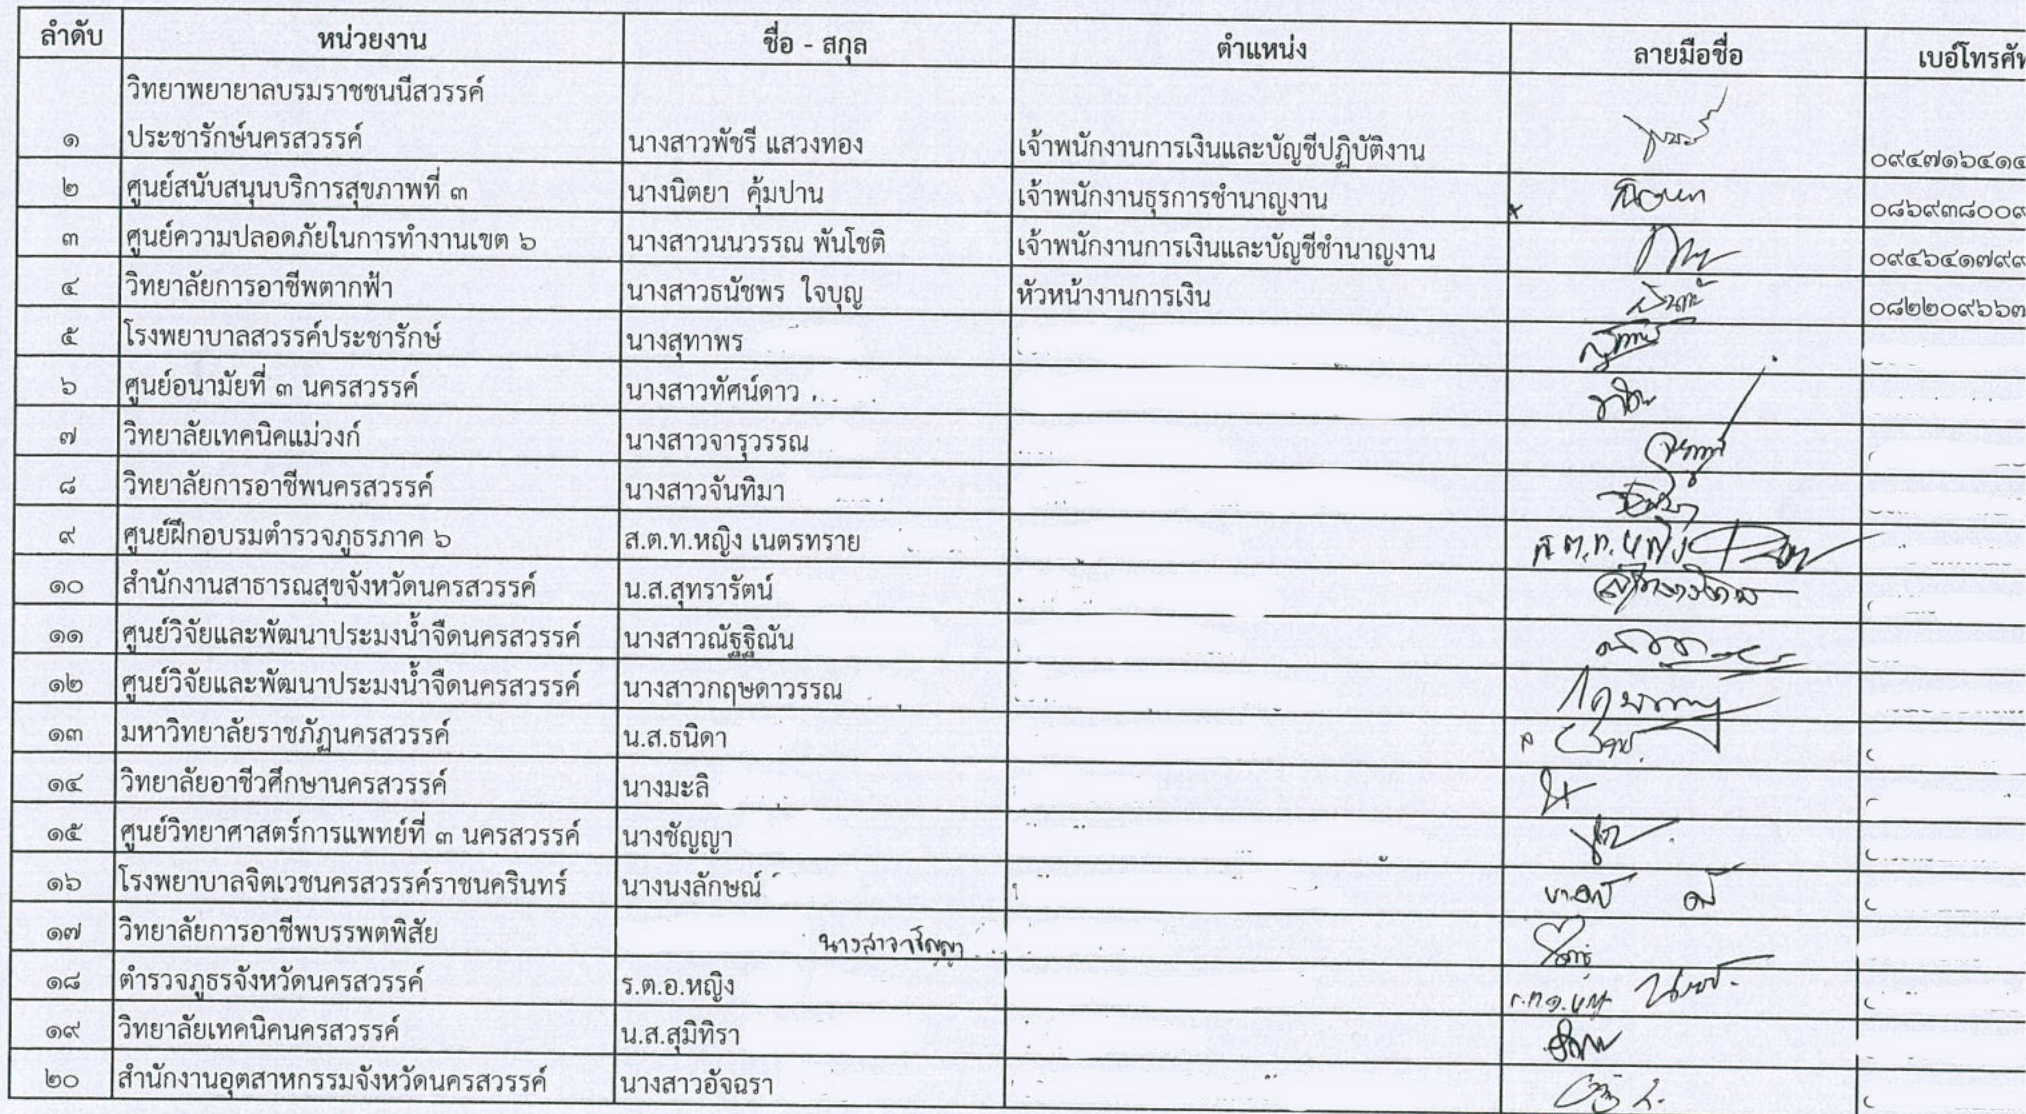 ลำดับ หน่วยงาน ชื่อ - สกุล ตำแหน่ง ลายมือชื่อ เบอโทรศัพ
วิทยาพยายาลบรมราชชนนีสวรรค์
๑ ประชารักษ์นครสวรรค์ นางสาวพัชรี แสวงทอง เจ้าพนักงานการเงินและบัญชีปฏิบัติงาน ๐๙๔๗๑๖๔๑๔
๒ ศูนย์สนับสนุนบริการสุขภาพที่ ๓ นางนิตยา คุ้มปาน เจ้าพนักงานธุรการชำนาญงาน ๐๘๖๙๓๘๐๐๙
๓ ศูนย์ความปลอดภัยในการทำงานเขต ๖ นางสาวนนวรรณ พันโชติ เจ้าพนักงานการเงินและบัญชีชำนาญงาน ๐๙๔๖๔๑๗๙๙
๔ วิทยาลัยการอาชีพตากฟ้า นางสาวธนัชพร ใจบุญ หัวหน้างานการเงิน ๐๘๒๒๐๙๖๖๓
๕ โรงพยาบาลสวรรค์ประชารักษ์ นางสุทาพร
๖ ศูนย์อนามัยที่ ๓ นครสวรรค์ นางสาวทัศน์ดาว
๗ วิทยาลัยเทคนิคแม่วงก์ นางสาวจารุวรรณ
๘ วิทยาลัยการอาชีพนครสวรรค์ นางสาวจันทิมา
๙ ศูนย์ฝึกอบรมตำรวจภูธรภาค ๖ ส.ต.ท.หญิง เนตรทราย ส.ต.ท.หญิง
๑๐ สำนักงานสาธารณสุขจังหวัดนครสวรรค์ น.ส.สุทรารัตน์
๑๑ ศูนย์วิจัยและพัฒนาประมงน้ำจืดนครสวรรค์ นางสาวณัฐฐิณัน
๑๒ ศูนย์วิจัยและพัฒนาประมงน้ำจืดนครสวรรค์ นางสาวกฤษดาวรรณ
๑๓ มหาวิทยาลัยราชภัฏนครสวรรค์ น.ส.ธนิดา
๑๔ วิทยาลัยอาชีวศึกษานครสวรรค์ นางมะลิ
๑๕ ศูนย์วิทยาศาสตร์การแพทย์ที่ ๓ นครสวรรค์ นางชัญญา
๑๖ โรงพยาบาลจิตเวชนครสวรรค์ราชนครินทร์ นางนงลักษณ์
๑๗ วิทยาลัยการอาชีพบรรพตพิสัย
๑๘ ตำรวจภูธรจังหวัดนครสวรรค์ ร.ต.อ.หญิง
๑๙ วิทยาลัยเทคนิคนครสวรรค์ น.ส.สุมิทิรา
๒๐ สำนักงานอุตสาหกรรมจังหวัดนครสวรรค์ นางสาวอัจฉรา